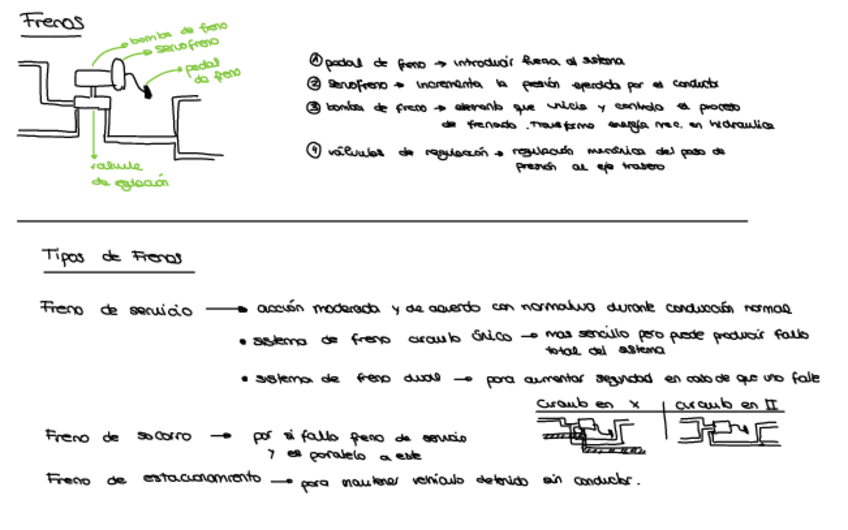 Frenos
bomba de freno
servofreno
pedal
de freno
válvula
de regulación
① pedal de freno → introducir fuerza al sistema
② servofreno → incrementa la presión ejercida por el conductor
③ bomba de freno → elemento que inicia y controla el proceso
de frenado. Transforma energía mec. en hidraulica
④ válvulas de regulación → regulación mecánica del paso de
presión al eje trasero
Tipos de Frenos
Freno de servicio → acción moderada y de acuerdo con normativa durante conducción normal
• sistema de freno circuito único → mas sencillo pero puede producir fallo
total del sistema
• sistema de freno dual → para aumentar seguridad en caso de que uno falle
circuito en x | circuito en II
Freno de socorro → por si fallo freno de servicio
y es paralelo a este
Freno de estacionamiento → para mantener vehículo detenido sin conductor.